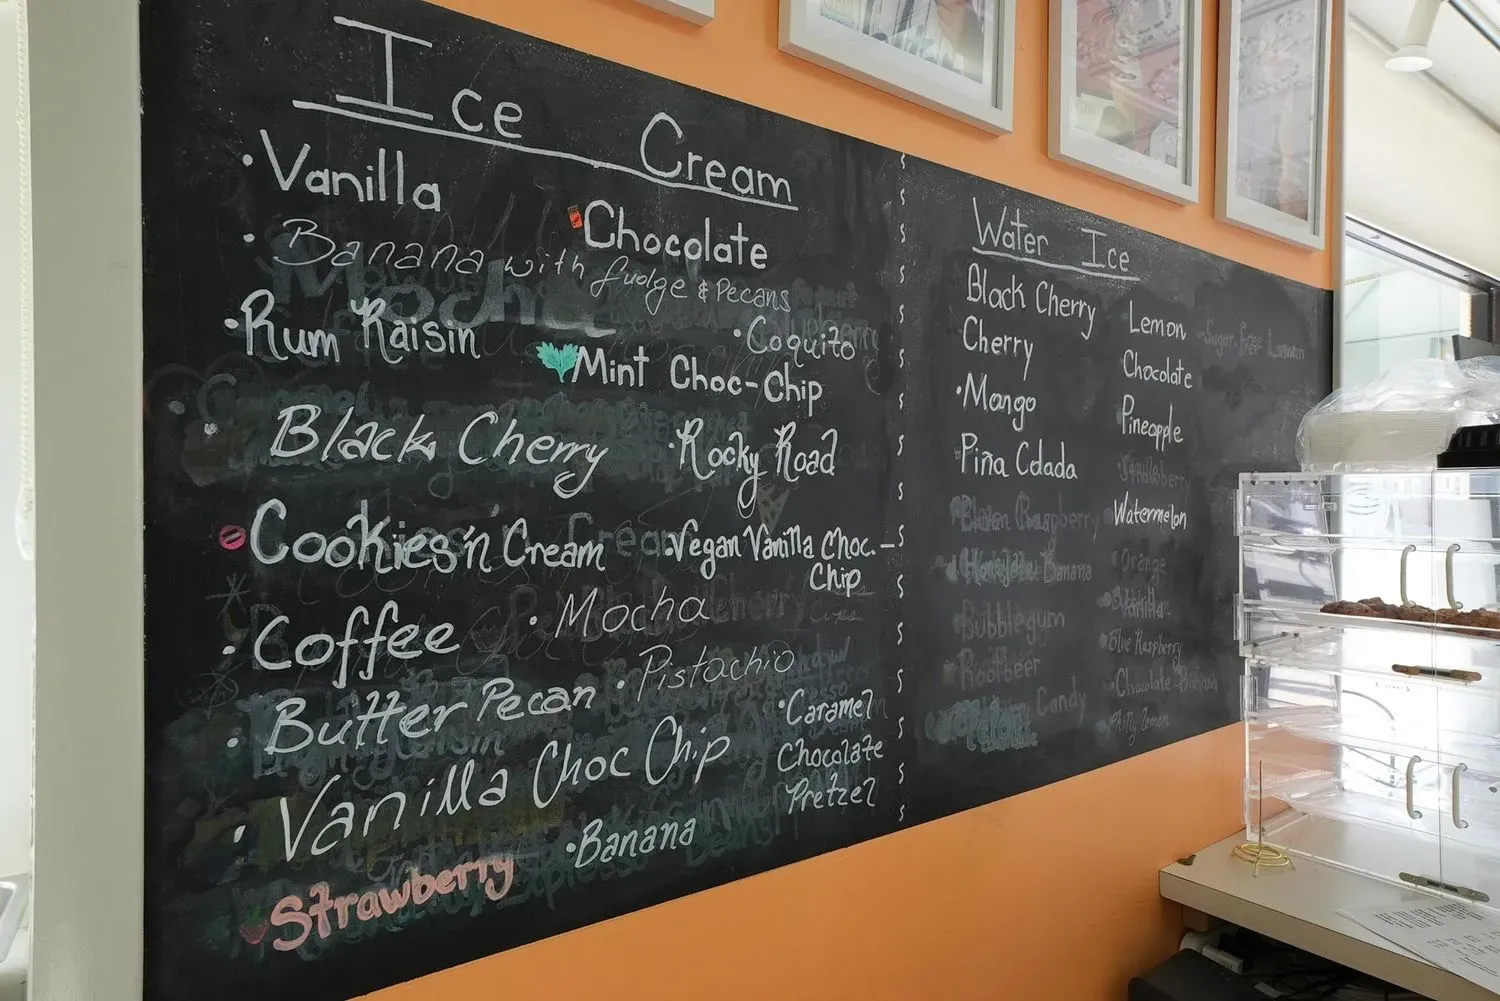 Ice Cream
• Vanilla
Chocolate
• Banana with fudge & Pecans
• Rum Raisin
• Coquito
Mint Choc-Chip
Black Cherry
• Rocky Road
Cookies 'n Cream
• Vegan Vanilla Choc. -
Chip
• Coffee
• Mocha
• Butter Pecan
• Pistachio
• Vanilla Choc Chip
• Caramel
Chocolate
Pretzel
Strawberry
• Banana
Water Ice
Black Cherry
Cherry
• Mango
Piña Colada
Raspberry
Banana
Bubblegum
Rootbeer
Candy
Lemon
Chocolate
Pineapple
Watermelon
Orange
Vanilla
Blue Raspberry
Chocolate
Philly Lemon
Sugar free
Mocha